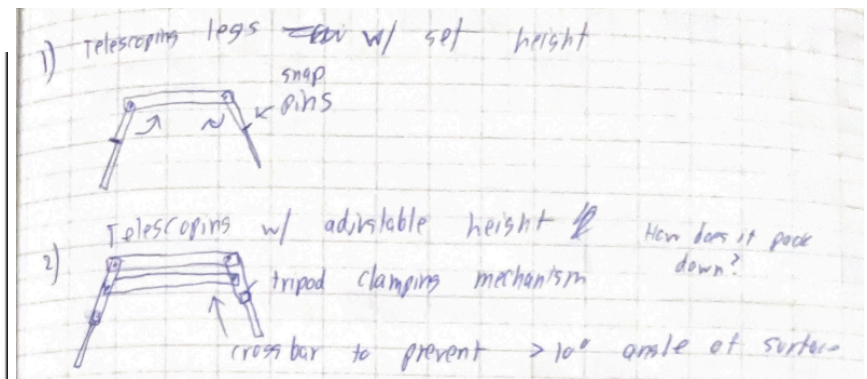 1) Telescoping legs w/ set height
snap
pins
2) Telescoping w/ adjustable height
How does it pack
down?
tripod clamping mechanism
cross bar to prevent > 10° angle of surface